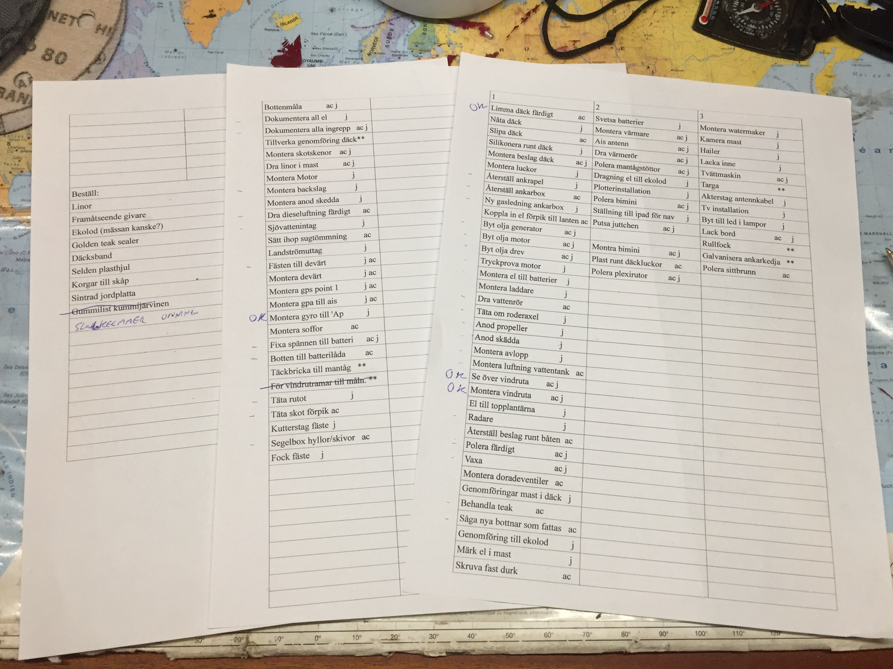 Beställ:
Linor
Framåtseende givare
Ekolod (mässan kanske?)
Golden teak sealer
Däcksband
Selden plasthjul
Korgar till skåp
Sintrad jordplatta
Gummilist kummijärvinen
Bottenmåla ac j
Dokumentera all el j
Dokumentera alla ingrepp ac j
Tillverka genomföring däck**
Montera skotskenor ac j
Dra linor i mast ac j
Montera Motor j
Montera backslag j
Montera anod skedda j
Dra dieselluftning färdigt ac
Sjövattenintag j
Sätt ihop sugtömmning ac
Landströmuttag j
Fästen till devärt j ac
Montera devärt j ac
Montera gps point 1 j ac
Montera gpa till ais j ac
OK Montera gyro till 'Ap j
Montera soffor ac
Fixa spännen till batteri ac j
Botten till batterilåda ac
Täckbricka till mantåg **
För vindrutramar till måln. **
Täta rutot j
Täta skot förpik ac
Kutterstag fäste j
Segelbox hyllor/skivor ac
Fock fäste j
1
OK Limma däck färdigt ac
Nåta däck j
Slipa däck j
Silikonera runt däck j
Montera beslag däck ac j
Montera luckor j
Återställ ankrapel j
Återställ ankarbox ac
Ny gasledning ankarbox j
Koppla in el förpik till lanten ac
Byt olja generator j
Byt olja motor j
Byt olja drev j
Tryckprova motor j
Montera el till batterier j
Montera laddare j
Dra vattenrör ac
Täta om roderaxel j
Anod propeller j
Anod skädda j
Montera avlopp j
Montera luftning vattentank ac
OK Se över vindruta ac j
OK Montera vindruta ac j
El till topplantärna j
Radare j
Återställ beslag runt båten ac
Polera färdigt ac j
Vaxa ac j
Montera doradeventiler ac
Genomföringar mast i däck j
Behandla teak ac
Såga nya bottnar som fattas ac
Genomföring till ekolod j
Märk el i mast j
Skruva fast durk ac
2
Svetsa batterier j
Montera värmare j
Ais antenn j
Dra värmerör ac j
Polera mantågstöttor ac j
Dragning el till ekolod j
Plotterinstallation j
Polera bimini j
Ställning till ipad för nav j
Putsa juttchen ac j
Montra bimini ac j
Plast runt däckluckor ac
Polera plexirutor ac j
3
Montera watermaker j
Kamera mast j
Hailer j
Lacka inne j
Tvättmaskin ac j
Targa **
Akterstag antennkabel j
Tv installation j
Byt till led i lampor j
Lack bord ac j
Rullfock **
Galvanisera ankarkedja **
Polera sittbrunn ac
80
20°
10°
0°
10°
20°
30°
40°
50°
60°
70°
80°
90°
100°
110°
120°